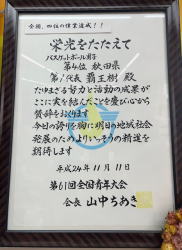 全国、四位の偉業達成!!
栄光をたたえて
バスケットボール男子
第4位 秋田県
第1代表 覇王樹 殿
たゆまざる努力と活動の成果が
ここに実を結んだことを慶び心から
賛辞をおくります
今日の誇りを胸に明日の地域社会
発展のためよりいっそうの精進を
期待します
平成24年11月11日
第61回全国青年大会
会長 山中ちあき